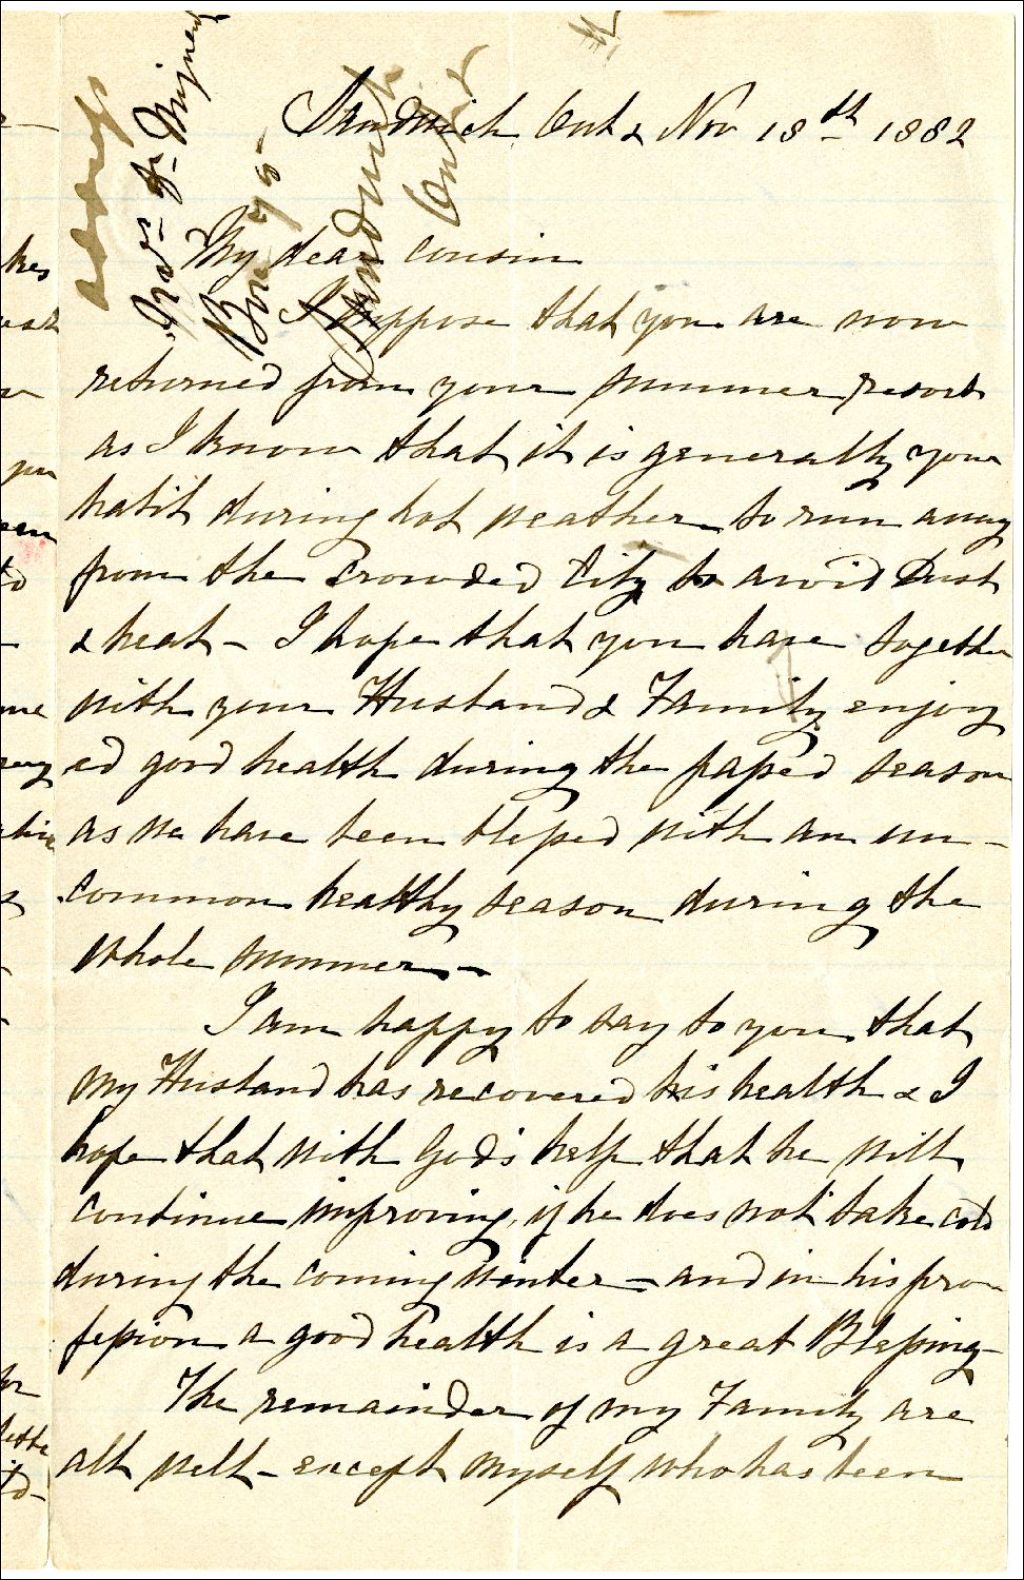 Sandwich Ont & Nov 18th 1882
address
Box 75
Sandwich
Ontr
My dear cousin
I suppose that you are now
returned from your summer resort
as I know that it is generally your
habit during hot weather to run away
from the crowded City to avoid Dust
& heat - I hope that you have together
with your Husband & Family enjoy
ed good health during the passed season
as we have been blessed with an un-
common healthy season during the
whole summer -
I am happy to say to you that
my Husband has recovered his health & I
hope that with God's help that he will
continue improving, if he does not take cold
during the coming winter - and in his pro
fession a good health is a great Blessing -
The remainder of my Family are
all well - except myself who has been